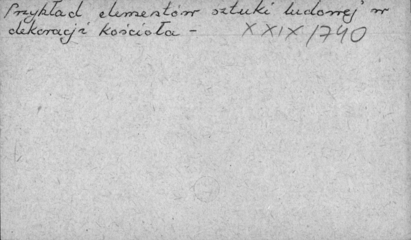 Przykład elementów sztuki ludowej w
dekoracji kościoła - XXIX/740